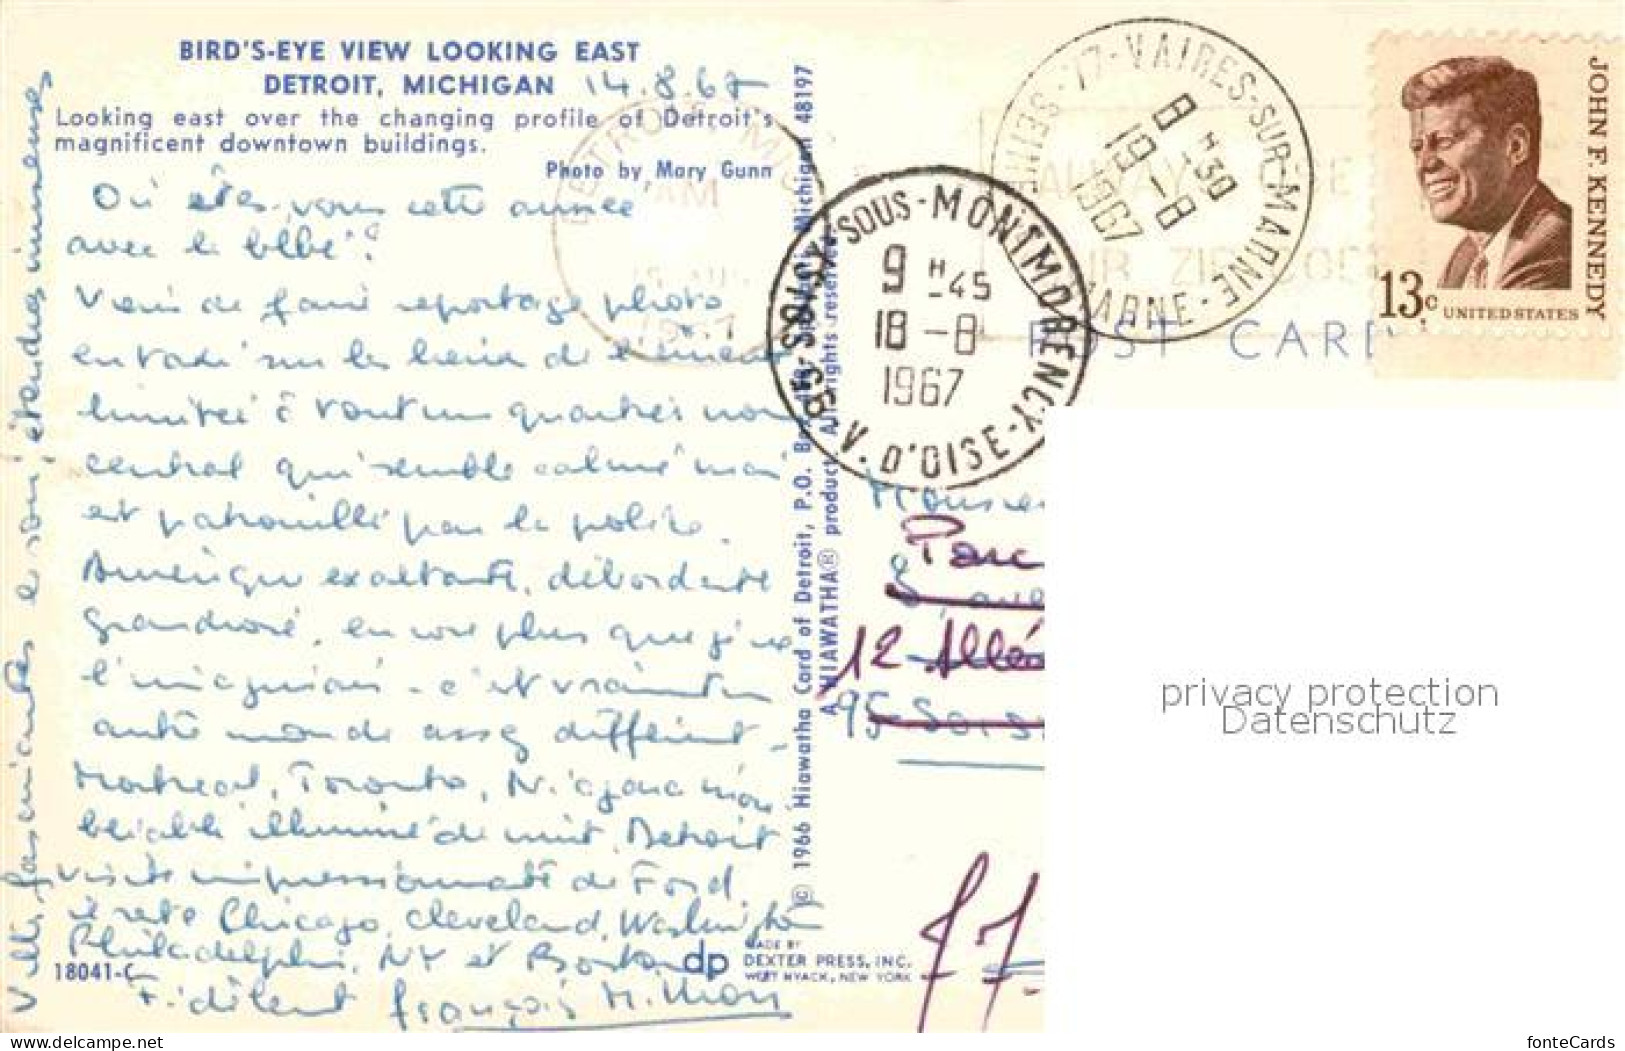 BIRD'S-EYE VIEW LOOKING EAST
DETROIT, MICHIGAN 14.8.67
Looking east over the changing profile of Detroit's
magnificent downtown buildings.
Photo by Mary Gunn
Où êtes-vous cette année
avec le bébé?
Viens de faire reportage photo
sur les lieux de l'émeute
limitée à tout un quartier non
central qui semble calmé mais
est patrouillé par la police.
Amérique exaltante, débordante
grandiose, encore plus que je ne
l'imaginais - c'est vraiment un
autre monde assez différent -
Montreal, Toronto, Niagara inou-
bliable illuminé de nuit, Detroit
visite impressionnante de Ford,
il reste Chicago, Cleveland, Washington
Philadelphie, NY et Boston,
Fidèlement François
Villes fascinantes et son étendues immenses
18041-C
© 1966 Hiawatha Card of Detroit, P.O. Michigan 48197
A HIAWATHA® product All rights reserved.
dp
MADE BY
DEXTER PRESS, INC.
WEST NYACK, NEW YORK
DETROIT, MICH
AM
1967
95-SOISY-SOUS-MONTMORENCY-V. D'OISE-
9 H -45
18 -8
1967
77-VAIRES-SUR-MARNE-
SEINE-ET-MARNE
8 H 30
19 -8
1967
POST CARD
JOHN F. KENNEDY
13c UNITED STATES
Monsie
Parc
8, ave
12 Allée
95-Sois
privacy protection
Datenschutz
www.delcampe.net
fonteCards